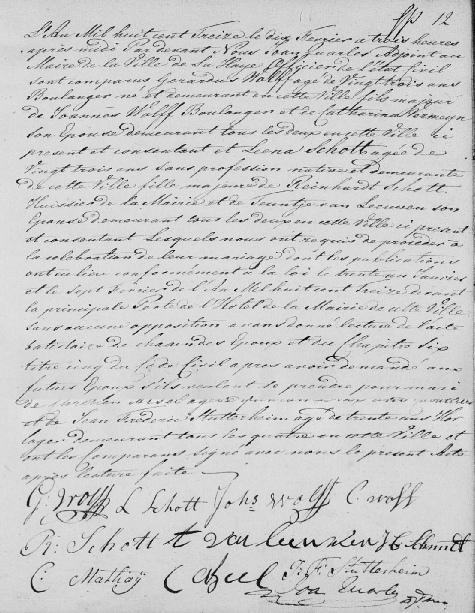 12
L'An Mil huit cent Treize le dix Fevrier a trois heures
après midi Par devant Nous Isaac Quarles Adjoint au
Maire de la Ville de La Haye Officier de l'état Civil
sont comparus Gerardus Wolff agé de Vingt trois ans
Boulanger né et demeurant en cette Ville fils majeur
de Joannes Wolff Boulanger et de Catharina
son Epouse demeurant tous les deux en cette Ville ici
present et consentant et Leena Schott agée de
Vingt trois ans sans profession native et demeurante
de cette Ville fille majeure de Reinhardt Schott
Huissier de la Mairie et de Jeuntje van Leeuwen son
Epouse demeurant tous les deux en cette Ville ici present
et consentant Lesquels nous ont requis de proceder à
la celebration de leur mariage dont les publications
ont eu lieu conformément à la loi le trente un Janvier
et le sept Fevrier de l'An Mil huit cent Treize devant
la principale Porte de l'Hotel de la Mairie de cette Ville
sans aucune opposition avons donné lecture de l'acte
batistaire de chaque des Epoux et du Chapitre six
titre cinq du Code Civil apres avoir demandé aux
futurs Epoux s'ils veulent se prendre pour mari
et de Jean Frederic Stutterheim agé de trente ans Hor
loger demeurant tous les quatre en cette Ville et
ont les Comparans signé avec nous le present Acte
après lecture faite
G. Wolff L Schott Johs Wolff C. Wolff
R. Schott van Leeuwen H Schmidt
C. Mathey J. F. Stutterheim
Isa Quarles